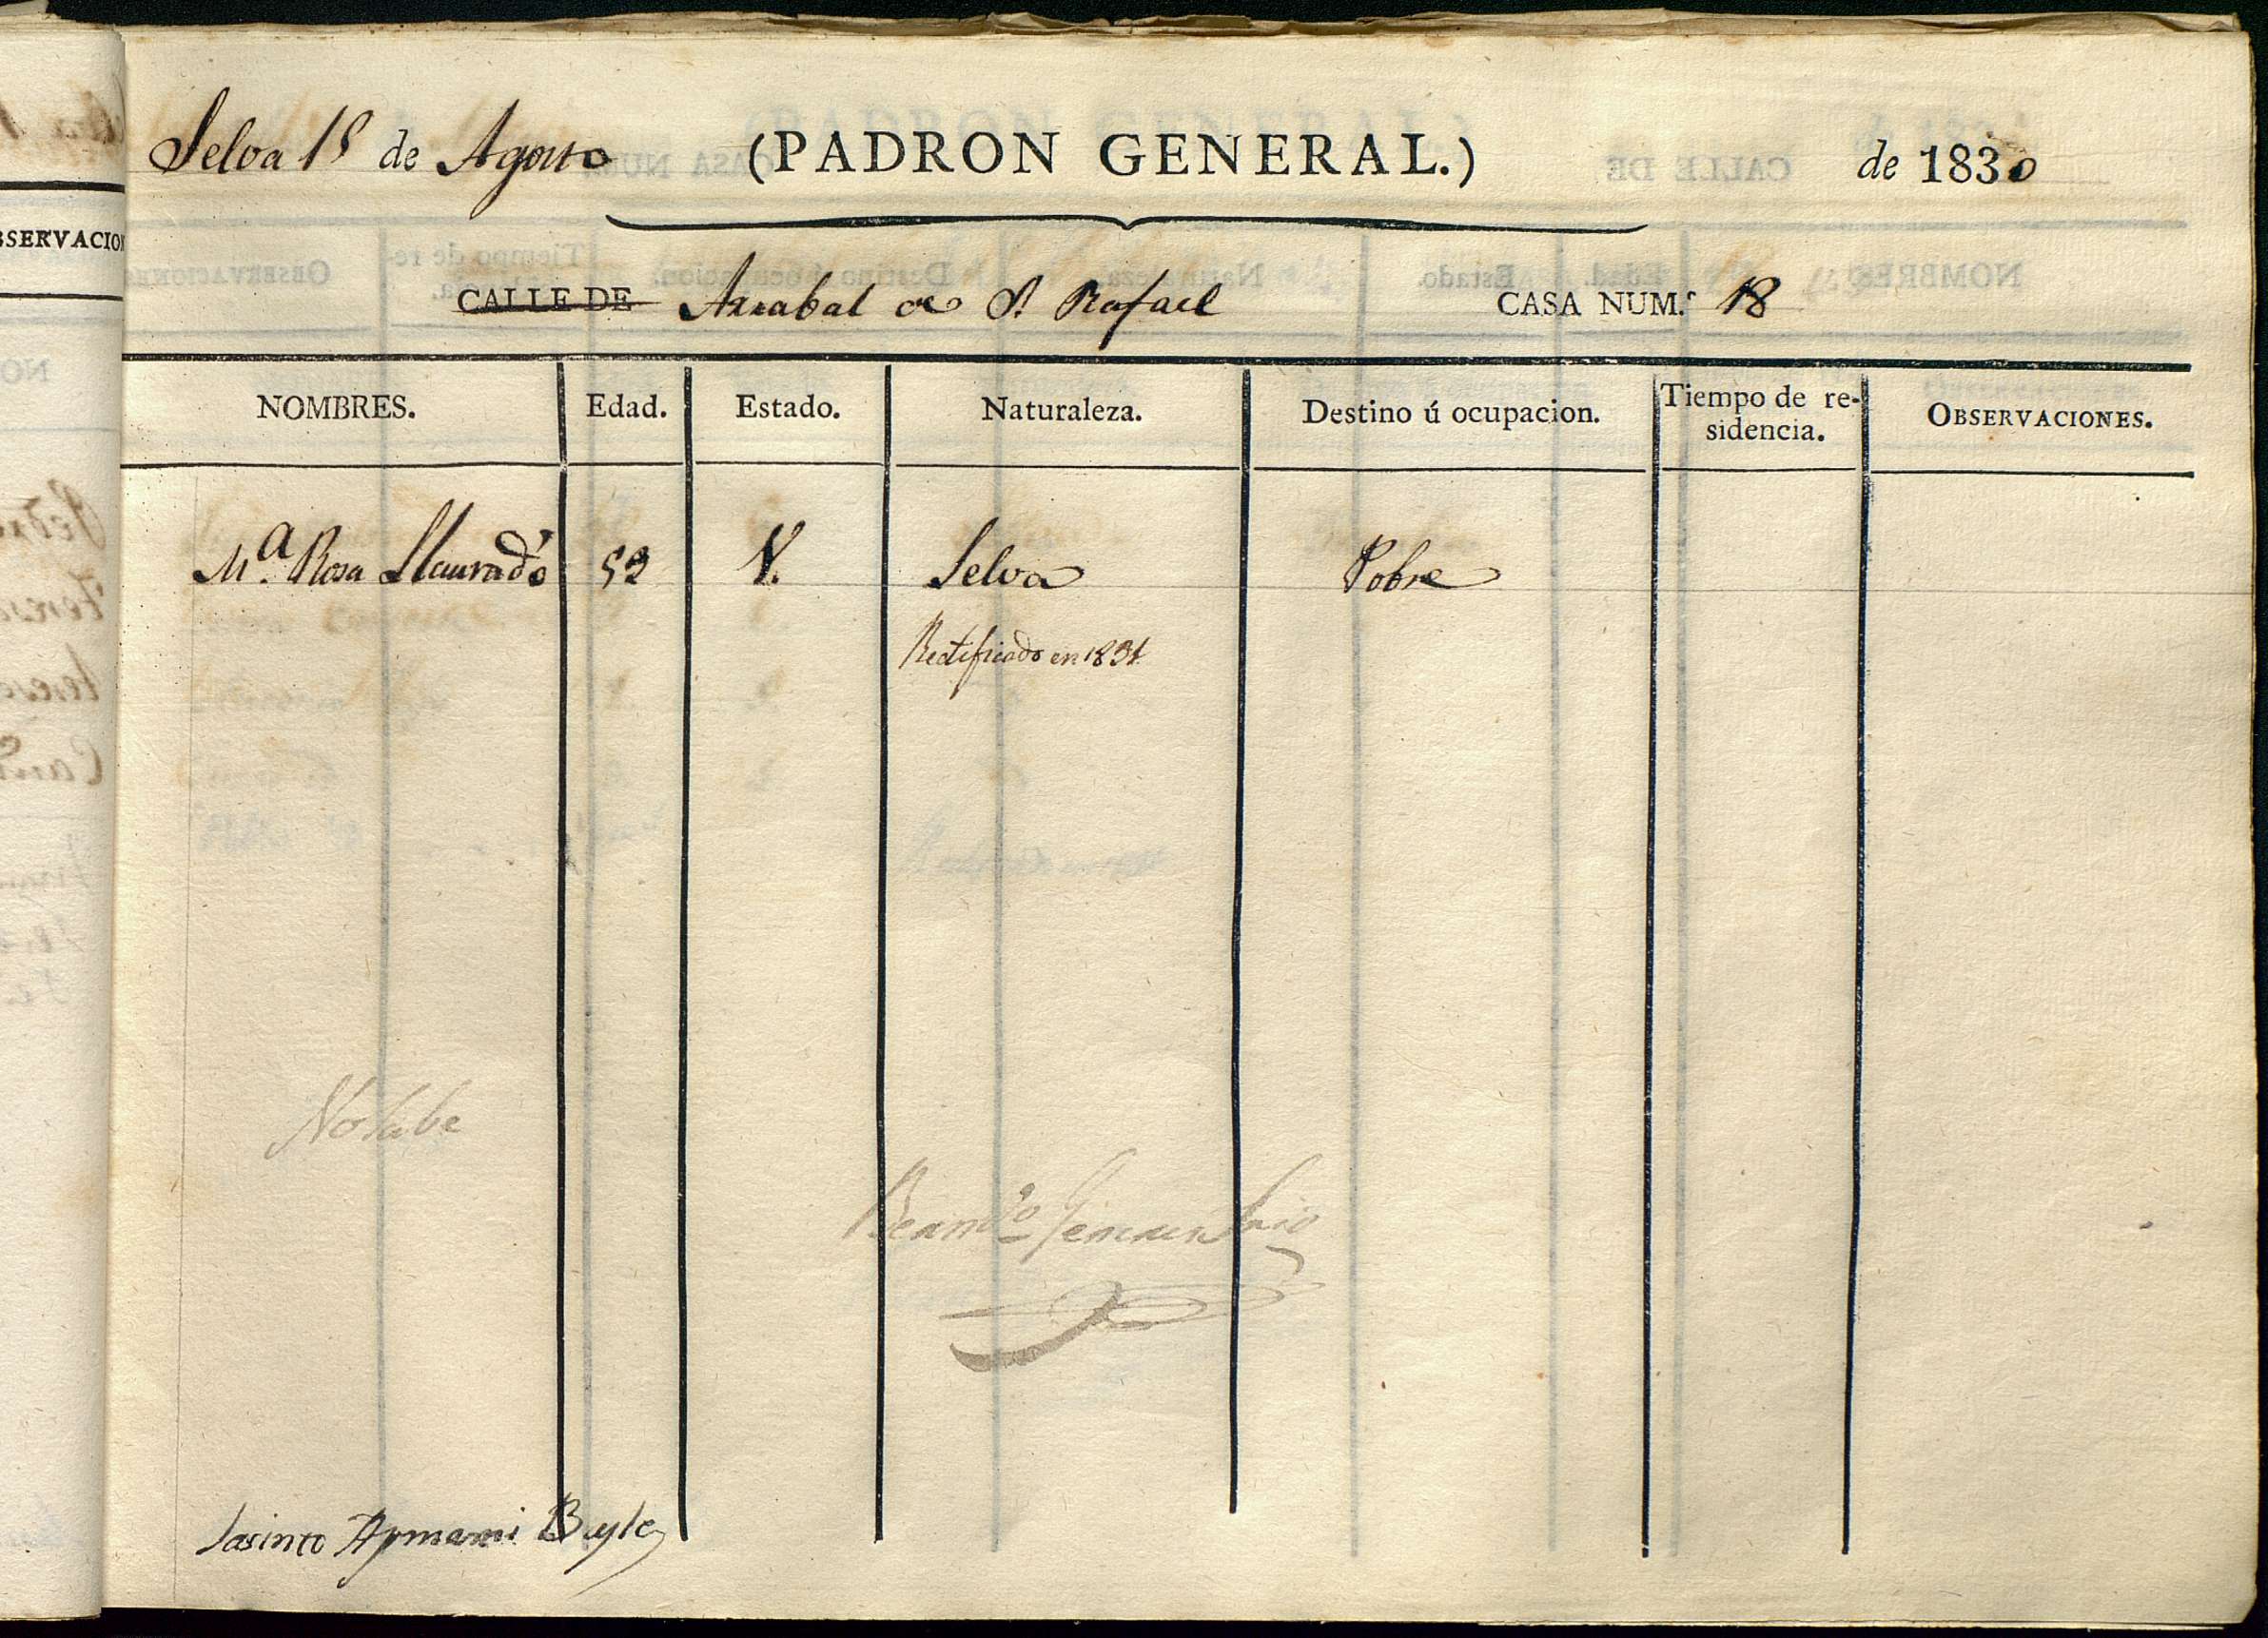 Selva 15 de Agosto (PADRON GENERAL.) de 1830
CALLE DE Arrabal de S. Rafael CASA NUM.º 18
NOMBRES. Edad. Estado. Naturaleza. Destino ú ocupacion. Tiempo de re- OBSERVACIONES.
sidencia.
M.ª Rosa Llauradó 52 V. Selva Pobre
Rectificado en 1831
No sabe
Jasinto Aymami Bayle
BSERVACION